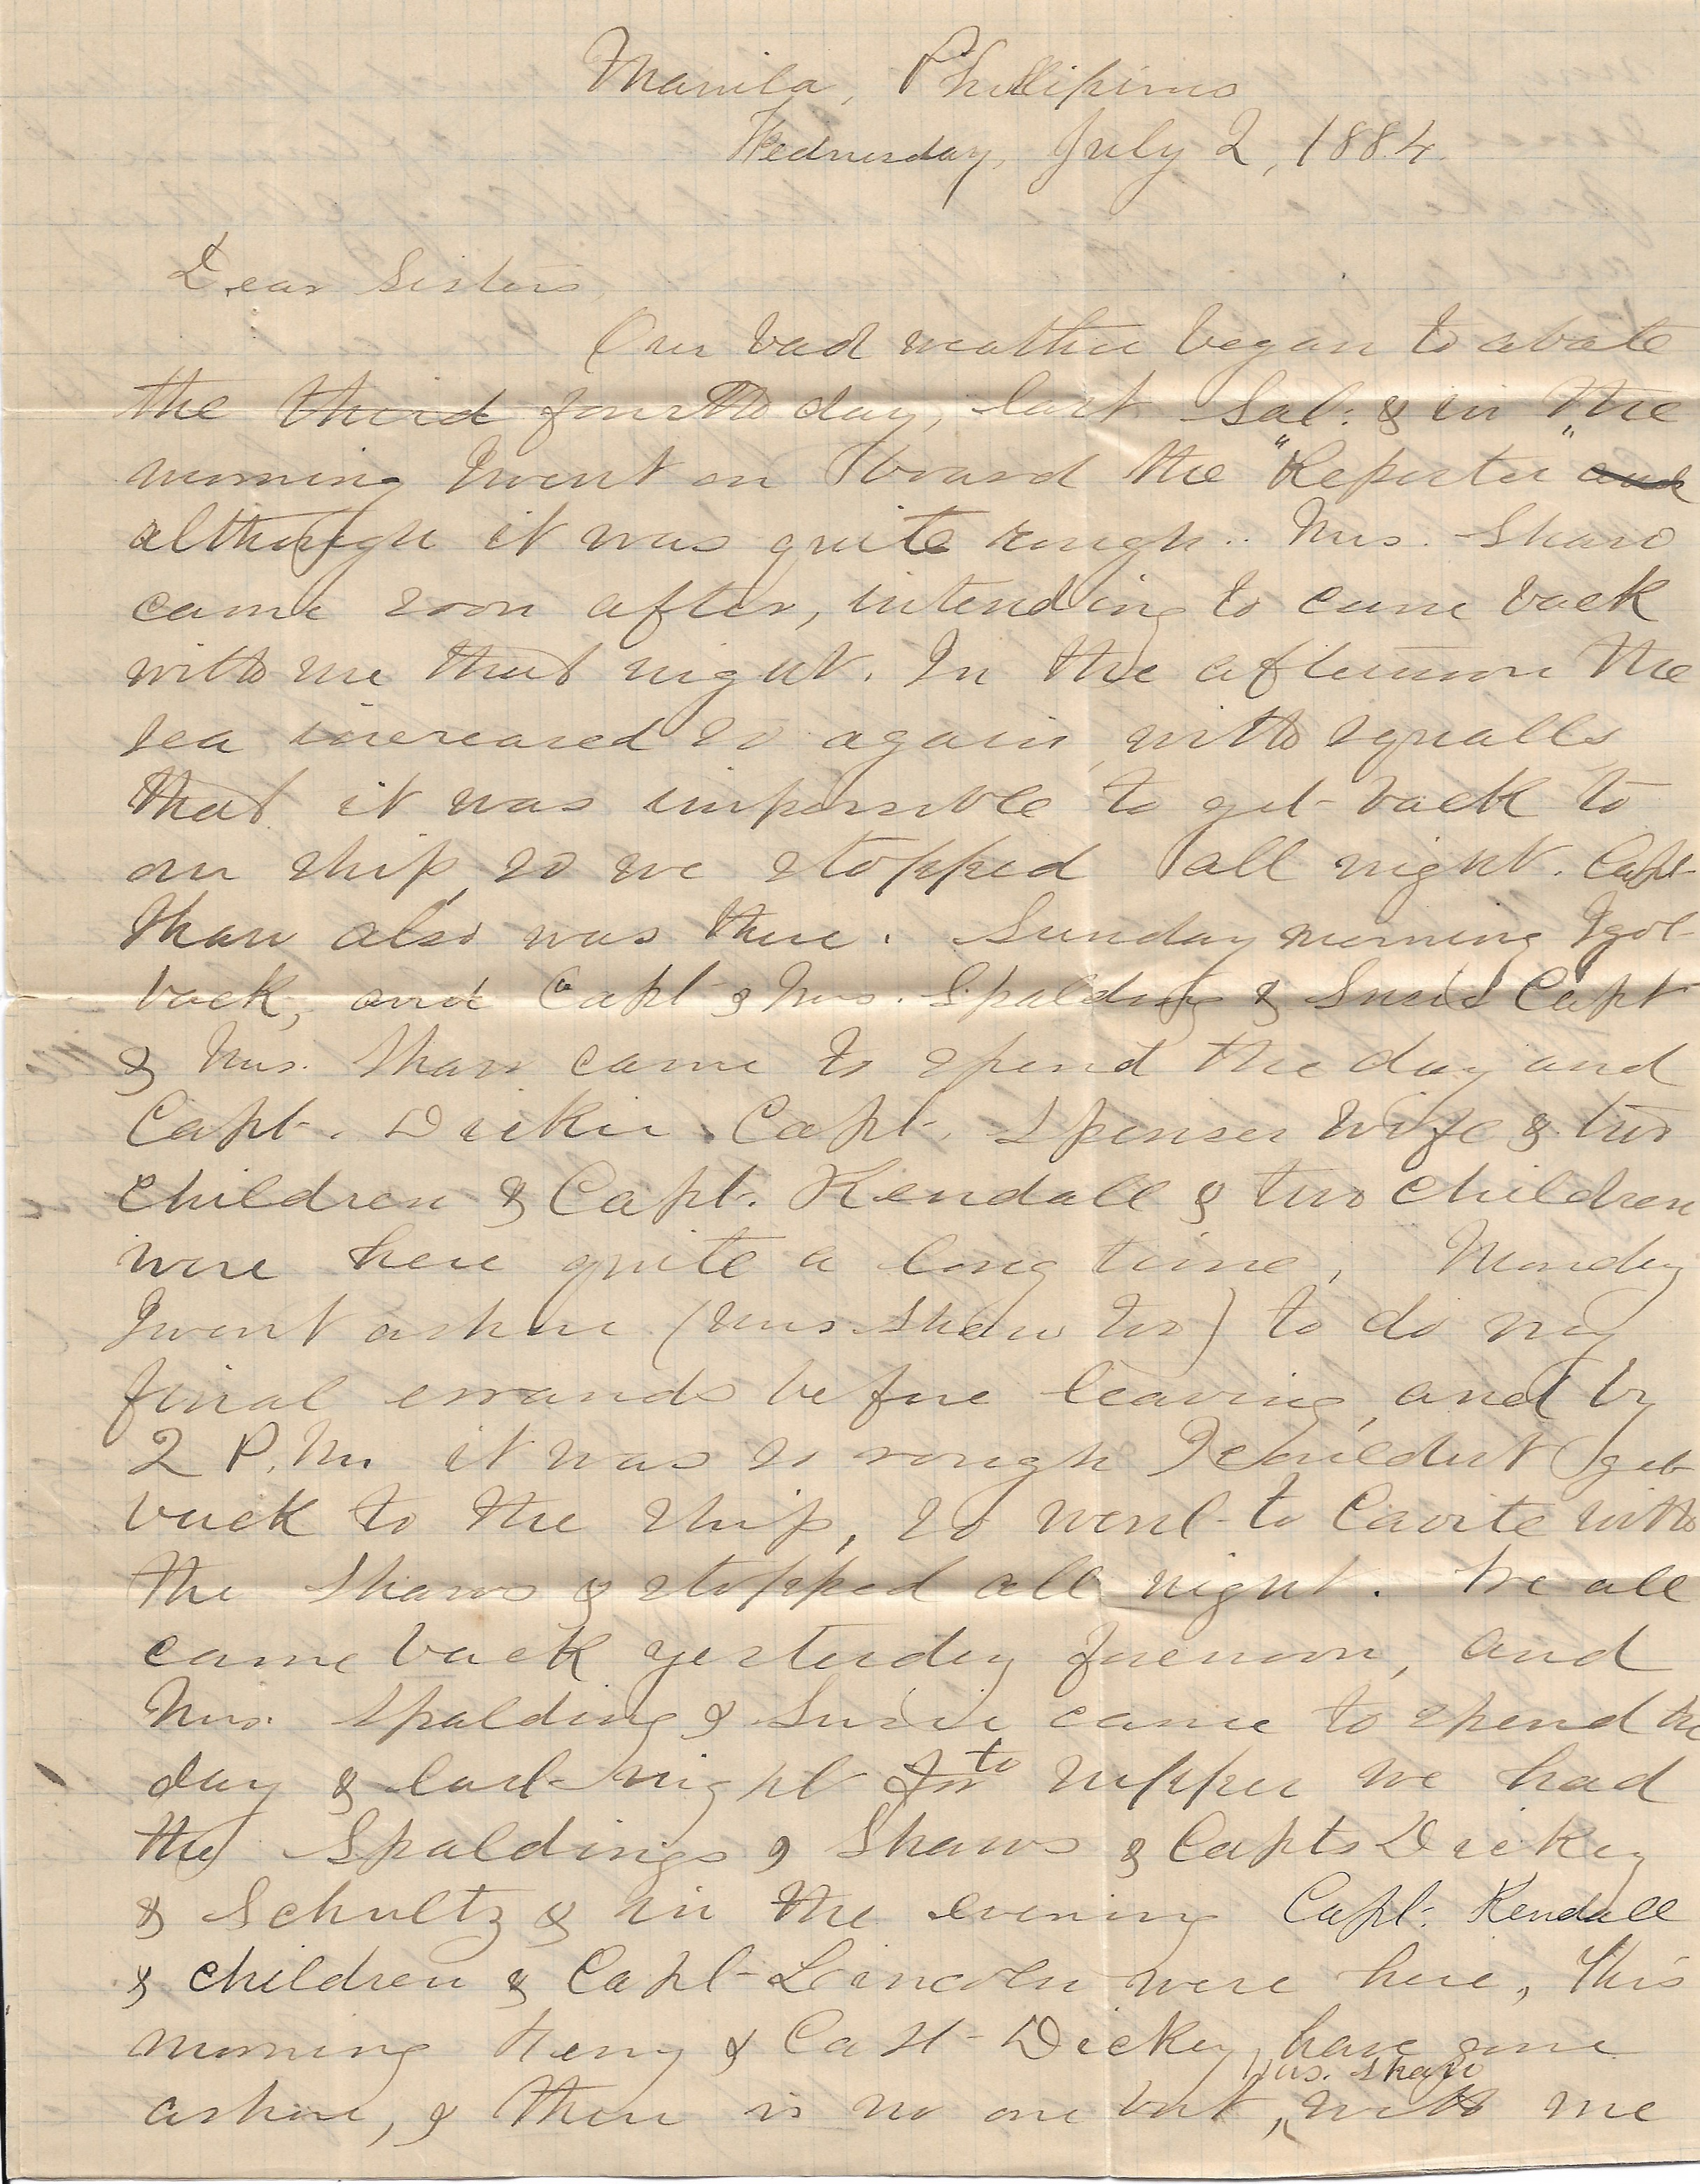 Manila, Phillipines
Wednesday, July 2, 1884.
Dear Sisters,
Our bad weather began to abate
the third fourth day, last Sat. & in the
morning I went on board the "Reporter" and
although it was quite rough. Mrs. Shaw
came soon after, intending to come back
with me that night. In the afternoon the
sea increased so again, with squalls,
that it was impossible to get back to
our ship, so we stopped all night. Capt
Shaw also was there. Sunday morning I got
back, and Capt & Mrs. Spalding & Susie Capt
& Mrs. Shaw came to spend the day and
Capt. Dickie. Capt. Spenser wife & two
children & Capt. Kendall & two children
were here quite a long time. Monday
I went ashore (Mrs. Shaw too) to do my
final errands before leaving, and by
2 P.M. it was so rough I couldnt get
back to the ship, so went to Cavite with
the Shaws & stopped all night. We all
came back yesterday forenoon, and
Mrs. Spalding & Susie came to spend the
day & last night for to supper we had
the Spaldings, Shaws & Capts Dickey
& Schultz & in the evening Capt. Kendall
& children & Capt Lincoln were here. This
morning Henry & Capt Dickey have gone
ashore, & there is no one but Mrs. Shaw with me